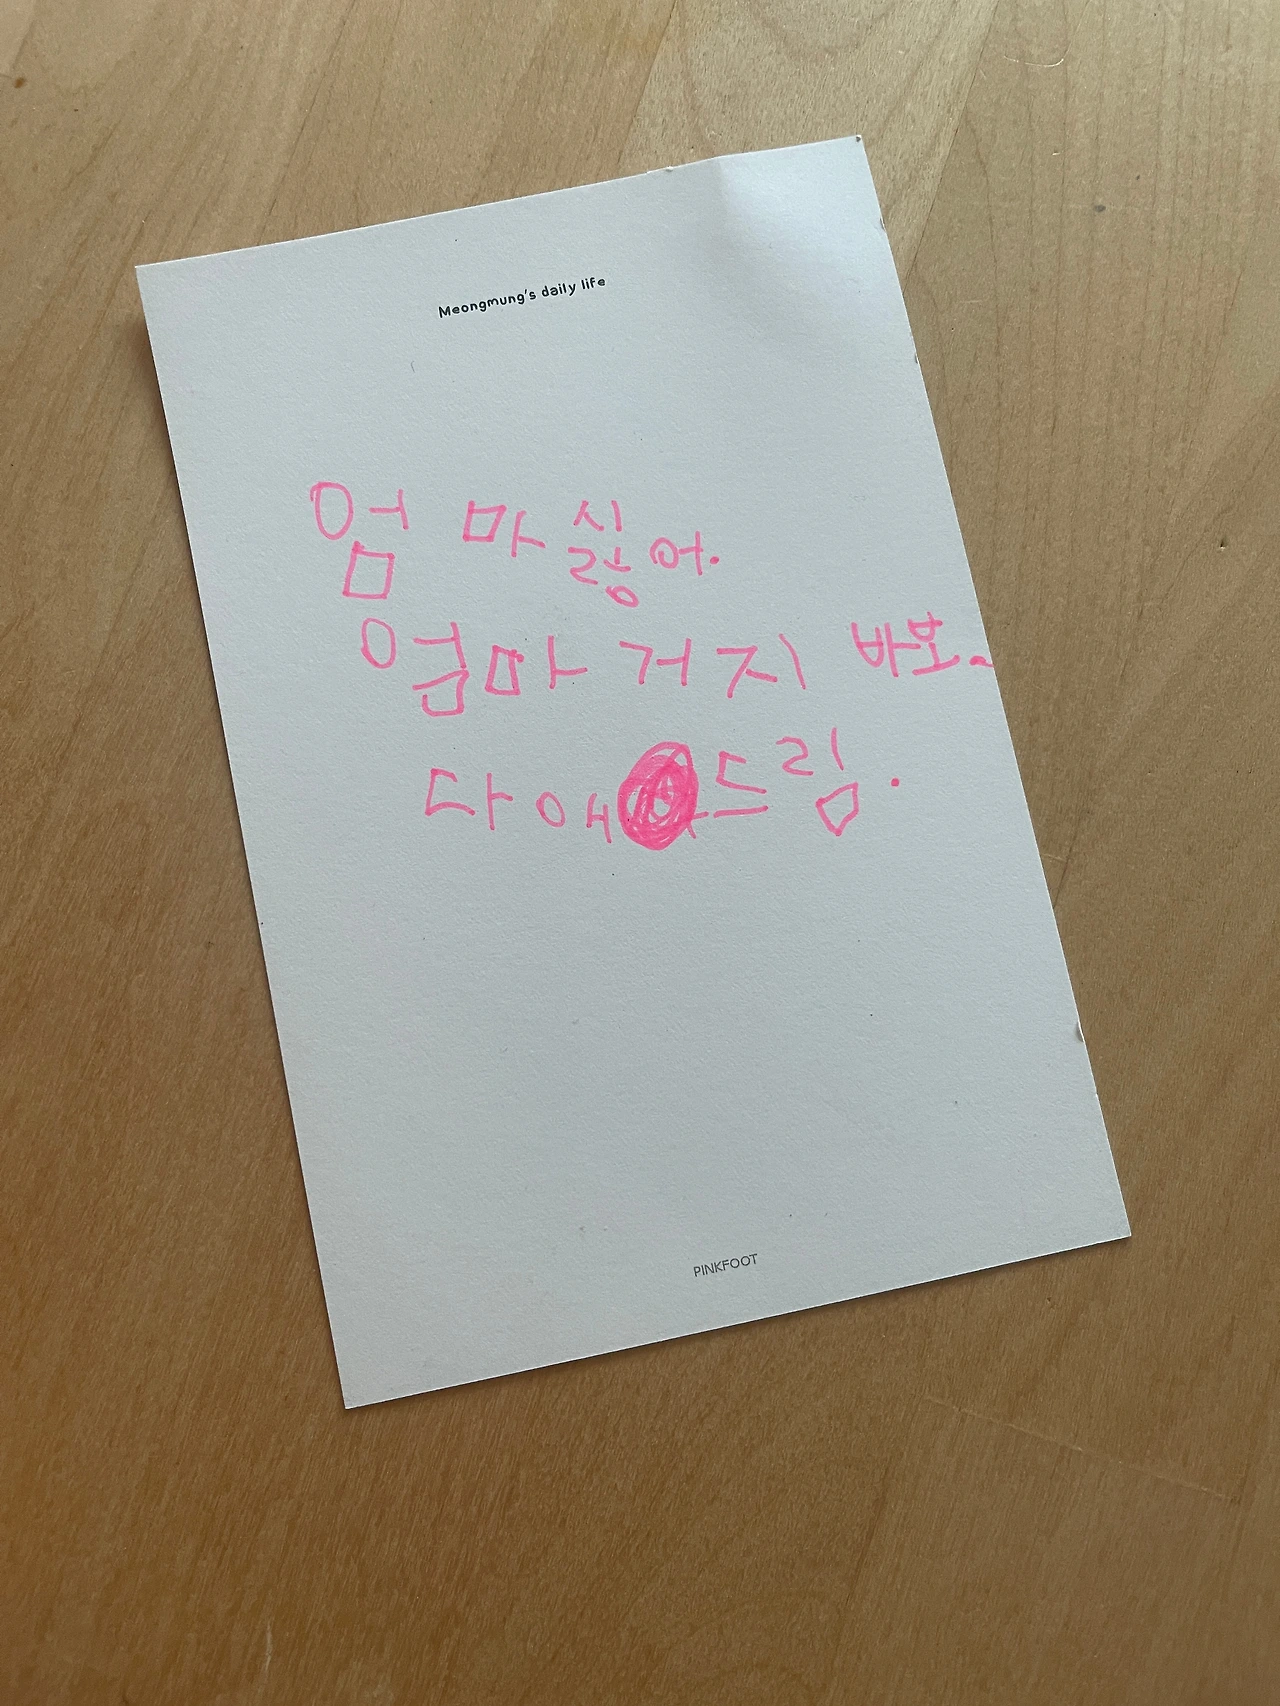 Meongmung's daily life
엄마싫어.
엄마 거지 바보~
다애 드림.
PINKFOOT